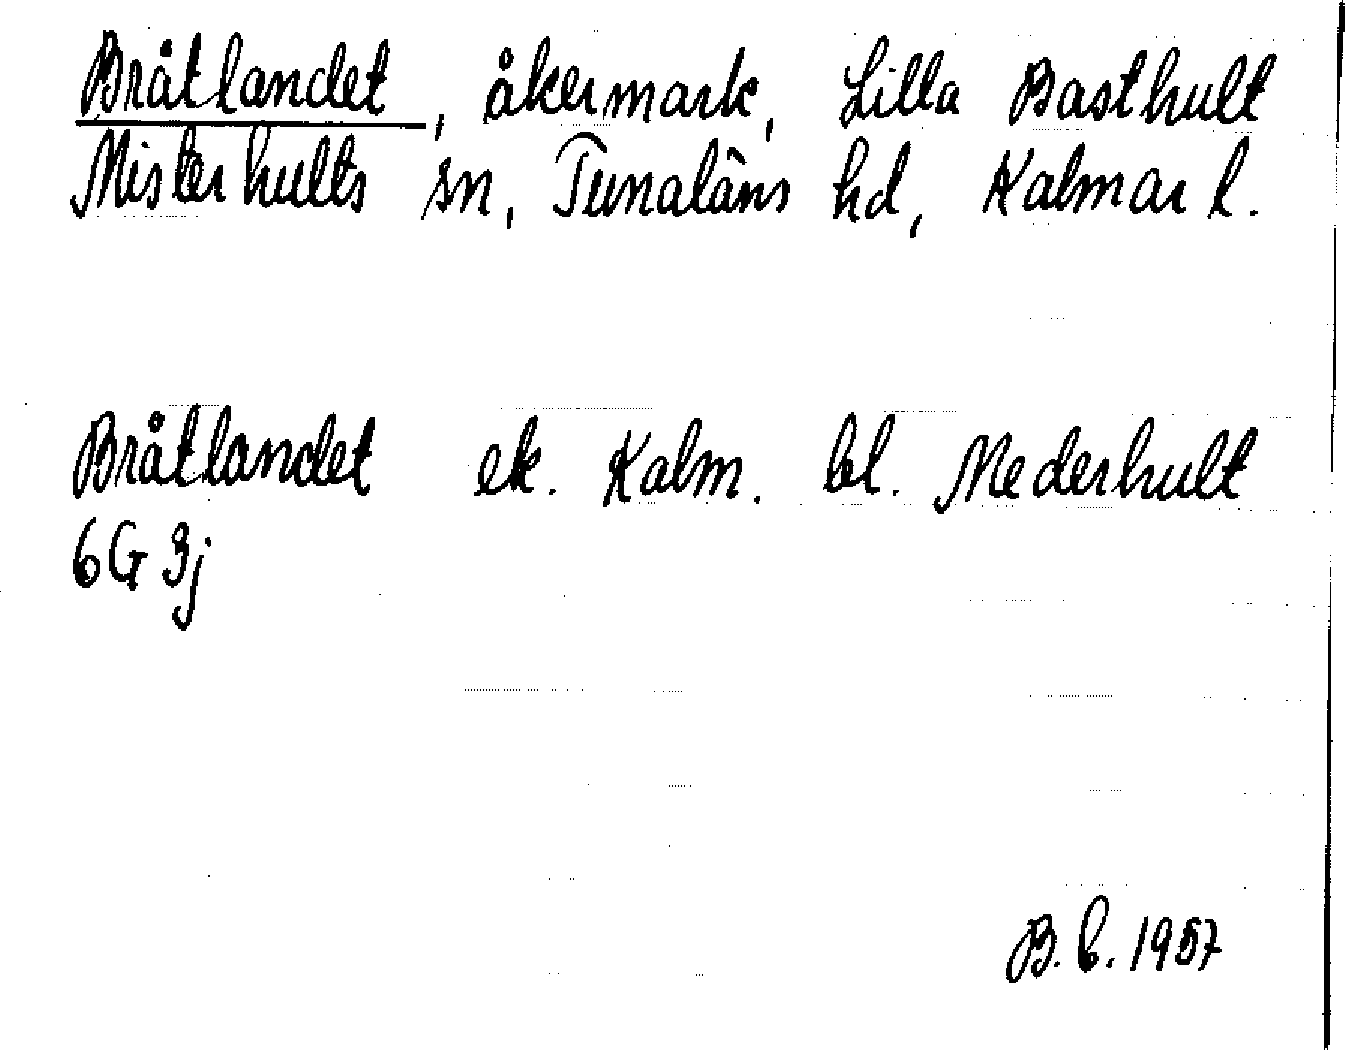 Bråtlandet, åkermark, Lilla Basthult
Misterhults sn, Tunaläns hd, Kalmar l.
Bråtlandet ek. Kalm. bl. Mederhult
6G 3j
B. C. 1957